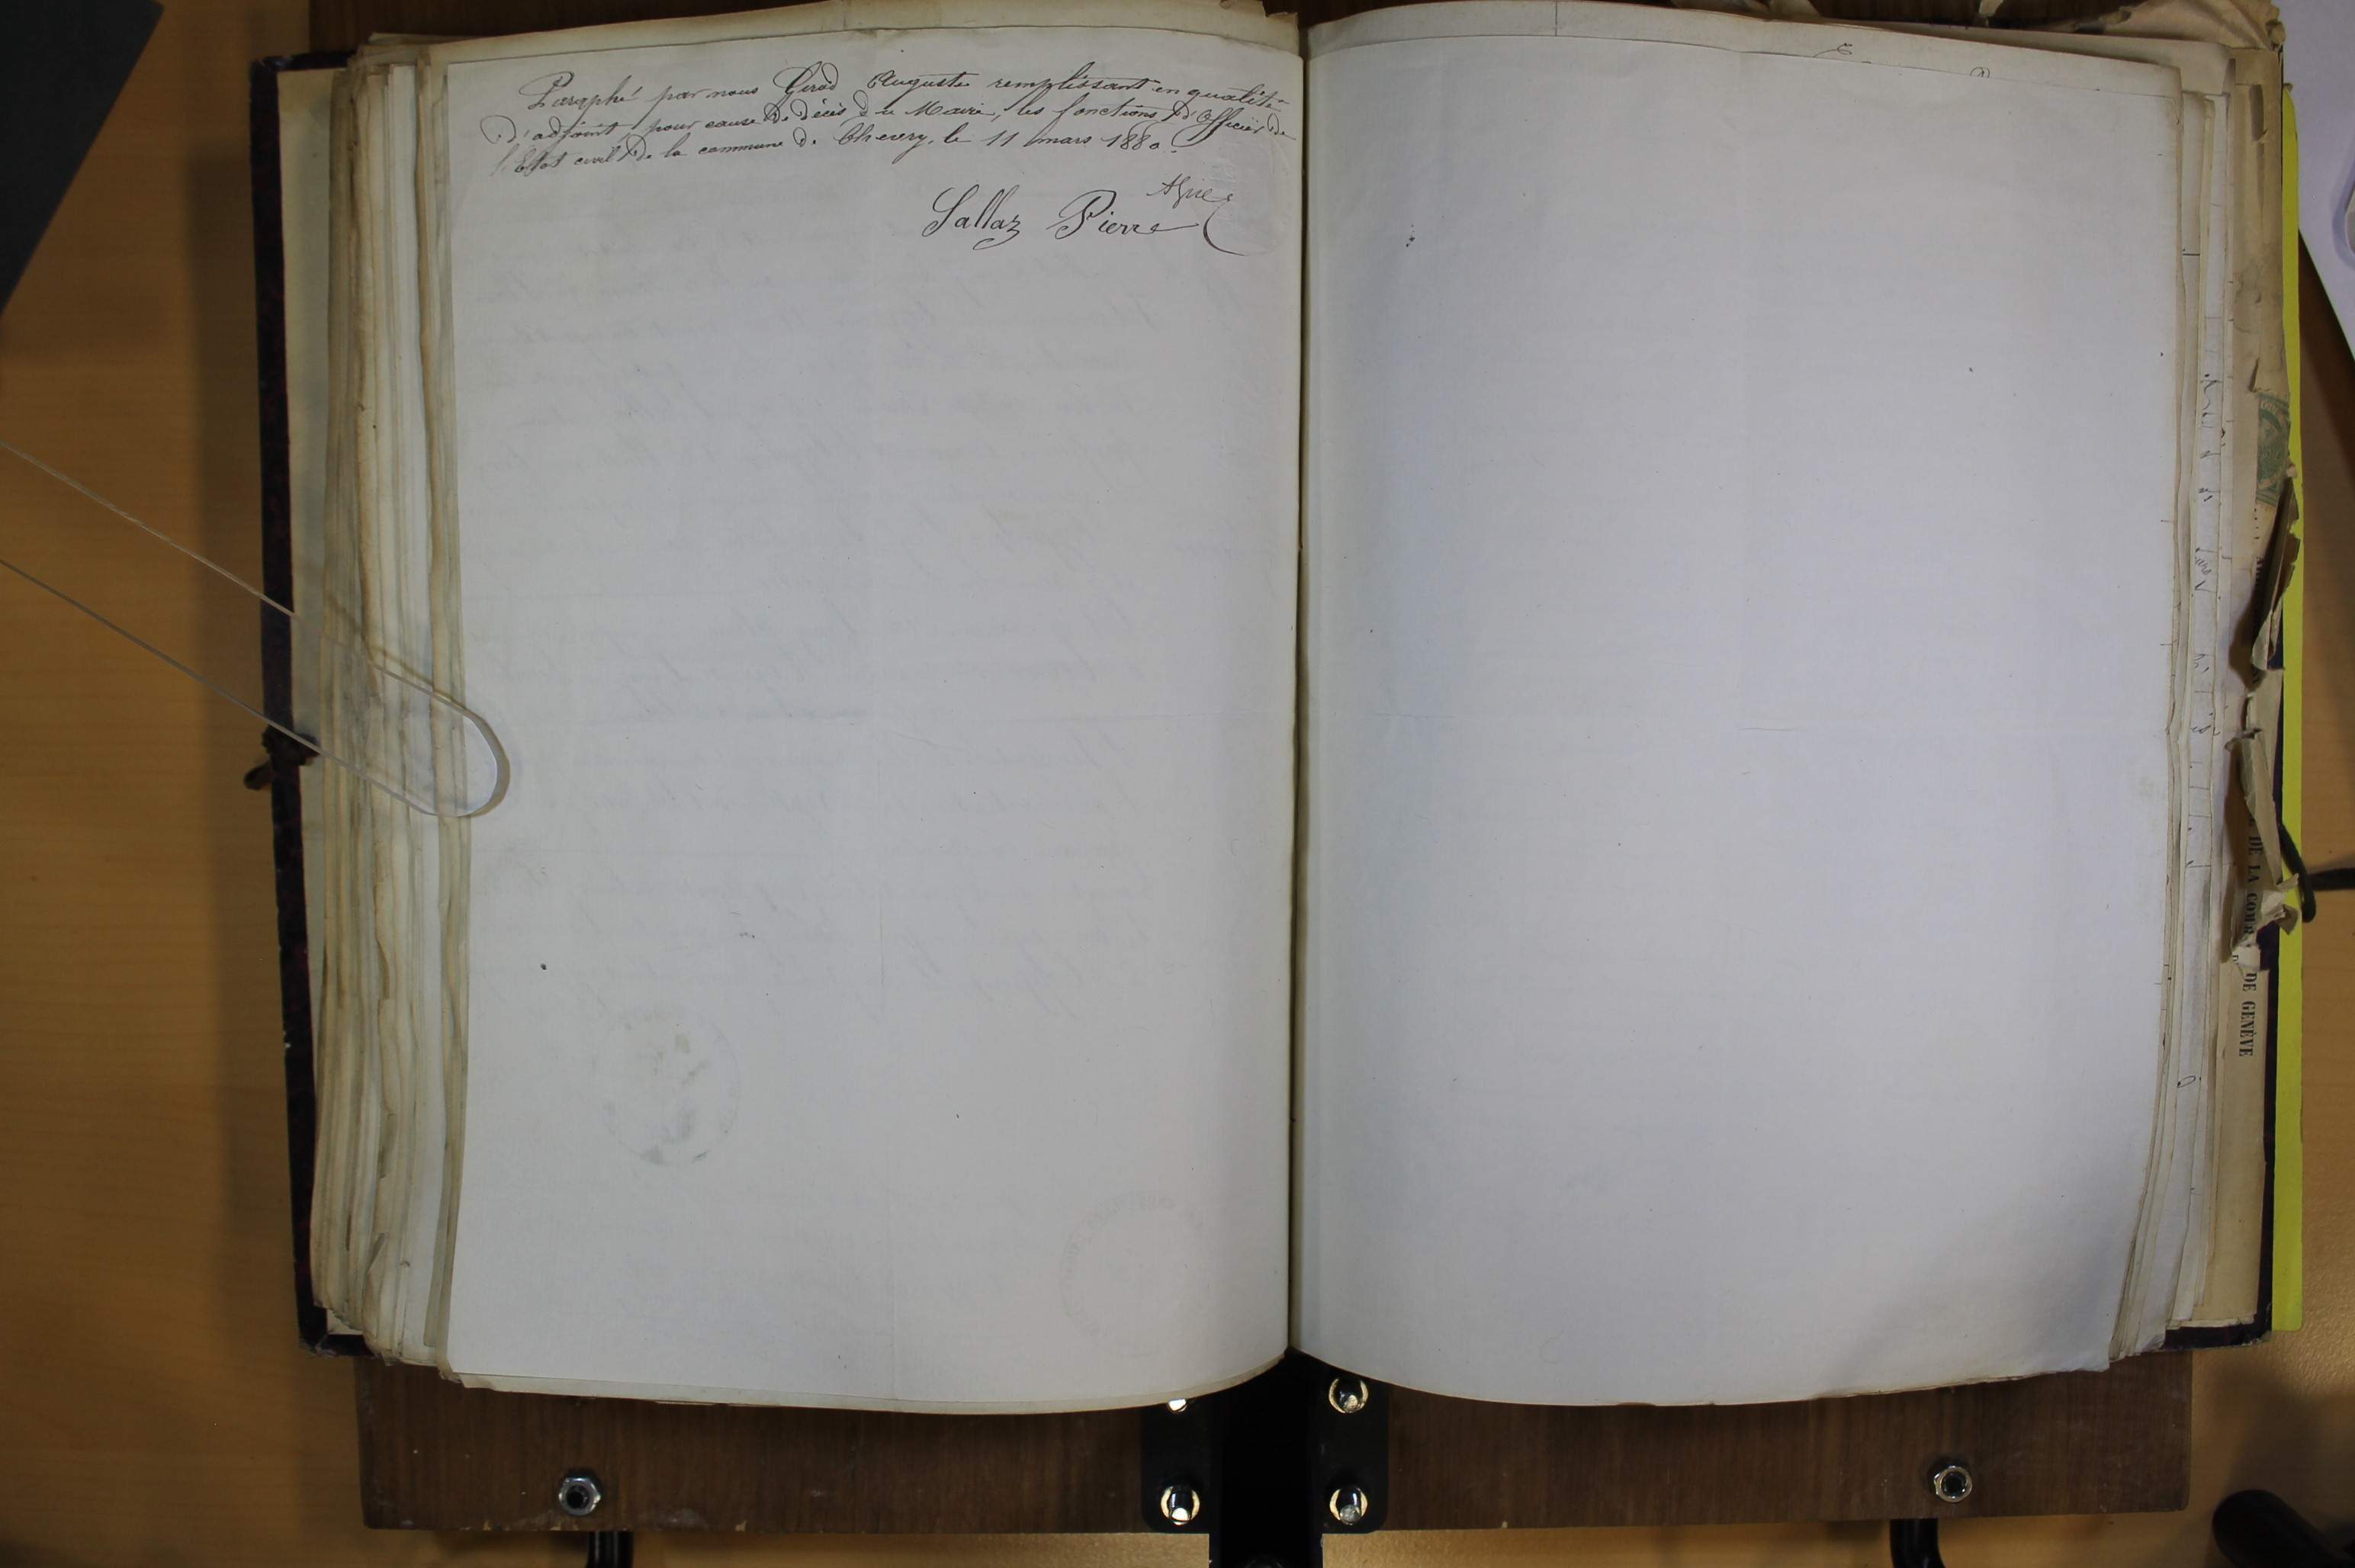 Paraphé par nous Girod Auguste remplissant en qualité
d'adjoint, pour cause de décès du Maire, les fonctions d'Officier de
l'Etat civil de la commune de Chevry, le 11 mars 1880.
Sallaz Pierre
DE LA COUR DE GENÈVE